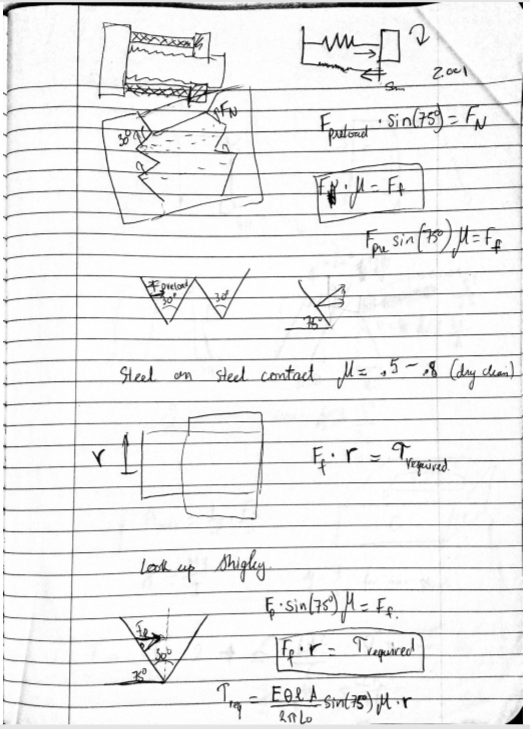 2.001
F_N
30°
F_preload · sin(75°) = F_N
F_N · μ = F_f
F_pre sin(75°) μ = F_f
F preload
30°
30°
75°
Steel on steel contact μ = .5 - .8 (dry clean)
r
F_f · r = T_required
Look up Shigley
F_p · sin(75°) μ = F_f.
F_p
30°
75°
F_f · r = T required
T_req = EθlA / 2πL₀ sin(75°) μ · r